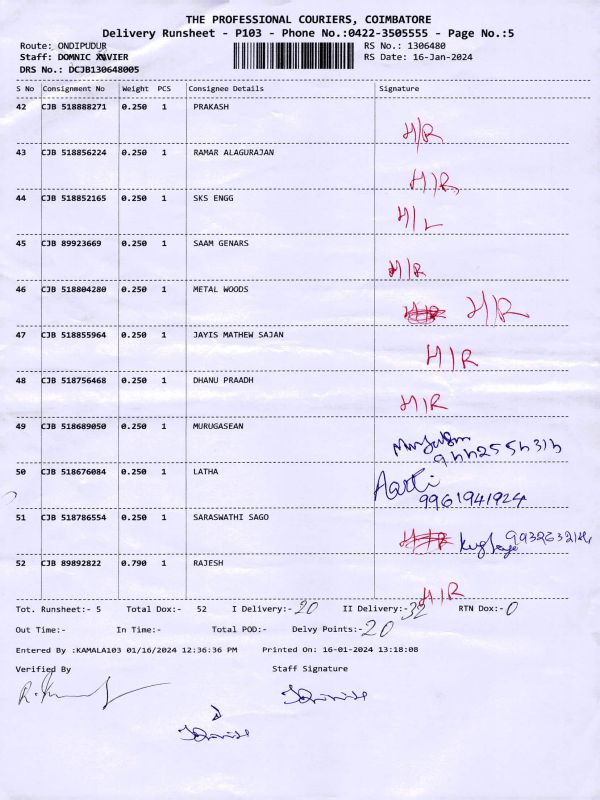 THE PROFESSIONAL COURIERS, COIMBATORE
Delivery Runsheet - P103 - Phone No.:0422-3505555 - Page No.:5
Route: ONDIPUDUR RS No.: 1306480
Staff: DOMNIC XAVIER RS Date: 16-Jan-2024
DRS No.: DCJB130648005
S No Consignment No Weight PCS Consignee Details Signature
42 CJB 518888271 0.250 1 PRAKASH
H/R
43 CJB 518856224 0.250 1 RAMAR ALAGURAJAN
H/R
44 CJB 518852165 0.250 1 SKS ENGG
H/L
45 CJB 89923669 0.250 1 SAAM GENARS
H/R
46 CJB 518804280 0.250 1 METAL WOODS
H/R
47 CJB 518855964 0.250 1 JAYIS MATHEW SAJAN
H/R
48 CJB 518756468 0.250 1 DHANU PRAADH
H/R
49 CJB 518689050 0.250 1 MURUGASEAN
50 CJB 518676084 0.250 1 LATHA
Aarti
9961941924
51 CJB 518786554 0.250 1 SARASWATHI SAGO
52 CJB 89892822 0.790 1 RAJESH
H/R
Tot. Runsheet:- 5 Total Dox:- 52 I Delivery:- 20 II Delivery:- 32 RTN Dox:- 0
Out Time:- In Time:- Total POD:- Delvy Points:- 20
Entered By :KAMALA103 01/16/2024 12:36:36 PM Printed On: 16-01-2024 13:18:08
Verified By Staff Signature